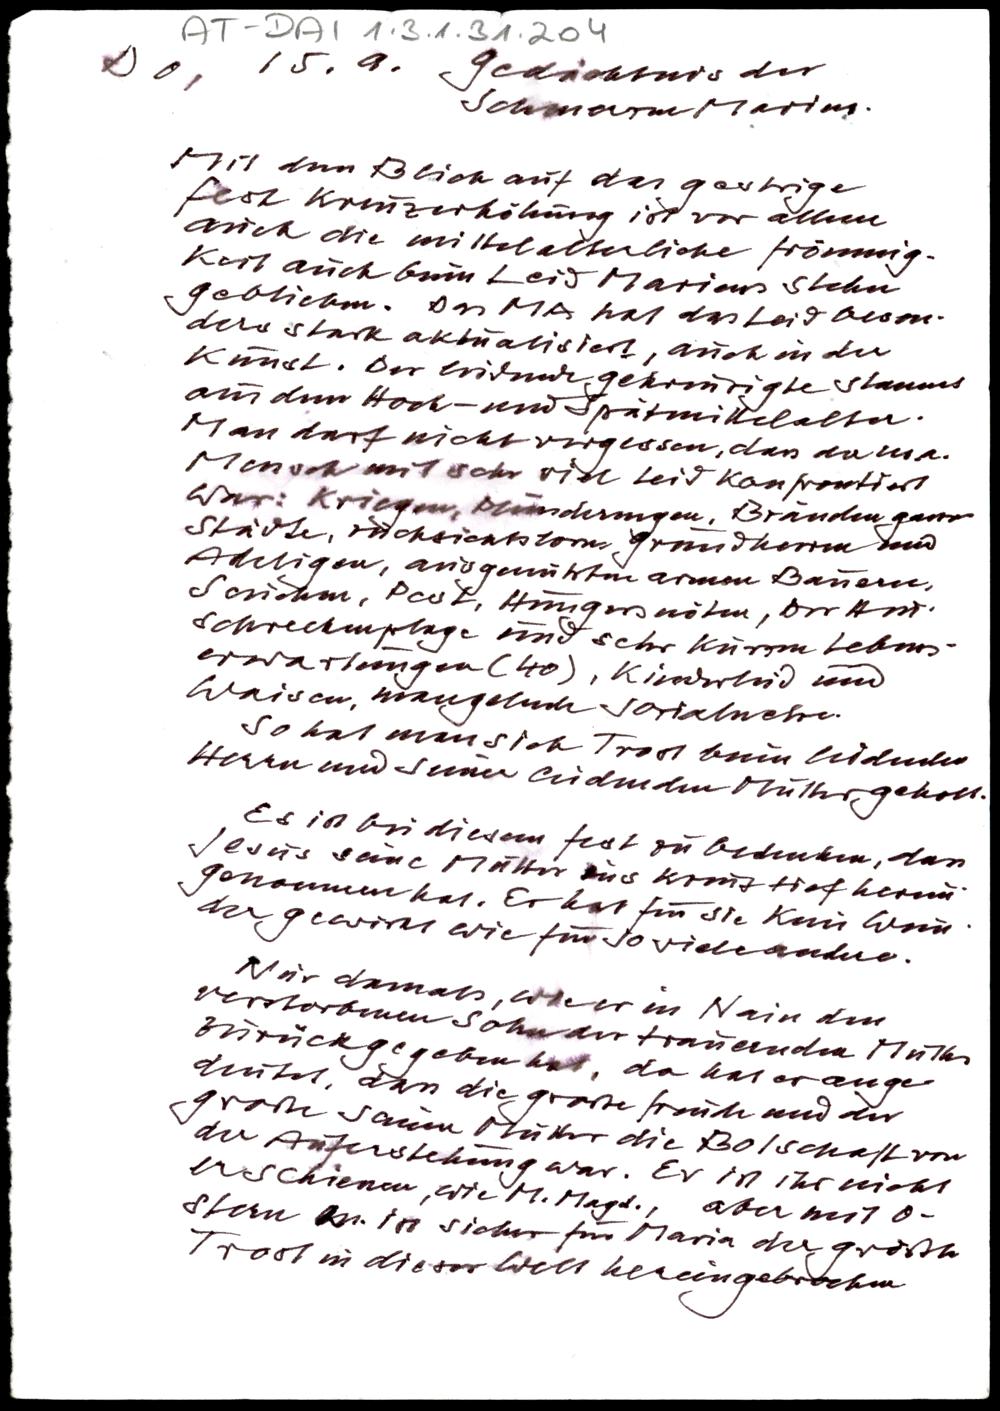 AT-DAI 1.3.1.31.204
Do, 15.9. Gedächtnis der
Schmerzen Mariens.
Mit dem Blick auf das gestrige
Fest Kreuzerhöhung ist vor allem
auch die mittelalterliche Frömmig-
keit auch beim Leid Mariens stehen
geblieben. Das MA hat das Leid beson-
ders stark aktualisiert, auch in der
Kunst. Der leidende gekreuzigte stammt
aus dem Hoch- und Spätmittelalter.
Man darf nicht vergessen, dass der ma.
Mensch mit sehr viel Leid konfrontiert
war: Kriegen, Plünderungen, Bränden ganzer
Städte, rücksichtslosen Grundherren und
Adeligen, ausgenützten armen Bauern,
Seuchen, Pest, Hungersnöten, Der Heu-
schreckenplage und sehr kurzen Lebens-
erwartungen (40), Kinderleid und
Waisen, mangelnde Sozialnetze.
So hat man sich Trost beim leidenden
Herrn und seiner leidenden Mutter geholt.
Es ist bei diesem Fest zu bedenken, dass
Jesus seine Mutter ins Kreuz tief herein-
genommen hat. Er hat für sie kein Wun-
der gewirkt wie für so viele andere.
Nur damals, wie er in Nain den
verstorbenen Sohn der trauernden Mutter
zurückgegeben hat, da hat er ange-
deutet, dass die große Freude und der
große seiner Mutter die Botschaft von
der Auferstehung war. Er ist ihr nicht
erschienen, wie M. Magd., aber mit O-
stern ist sicher für Maria der größte
Trost in dieser Welt hereingebrochen